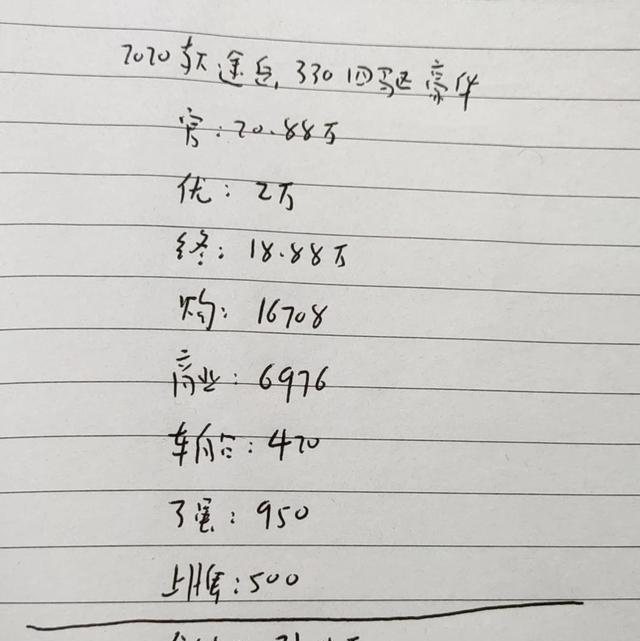 2020款途岳,330四驱豪华
官:20.88万
优:2万
终:18.88万
购:16708
商业:6976
车船:420
交强:950
上牌:500